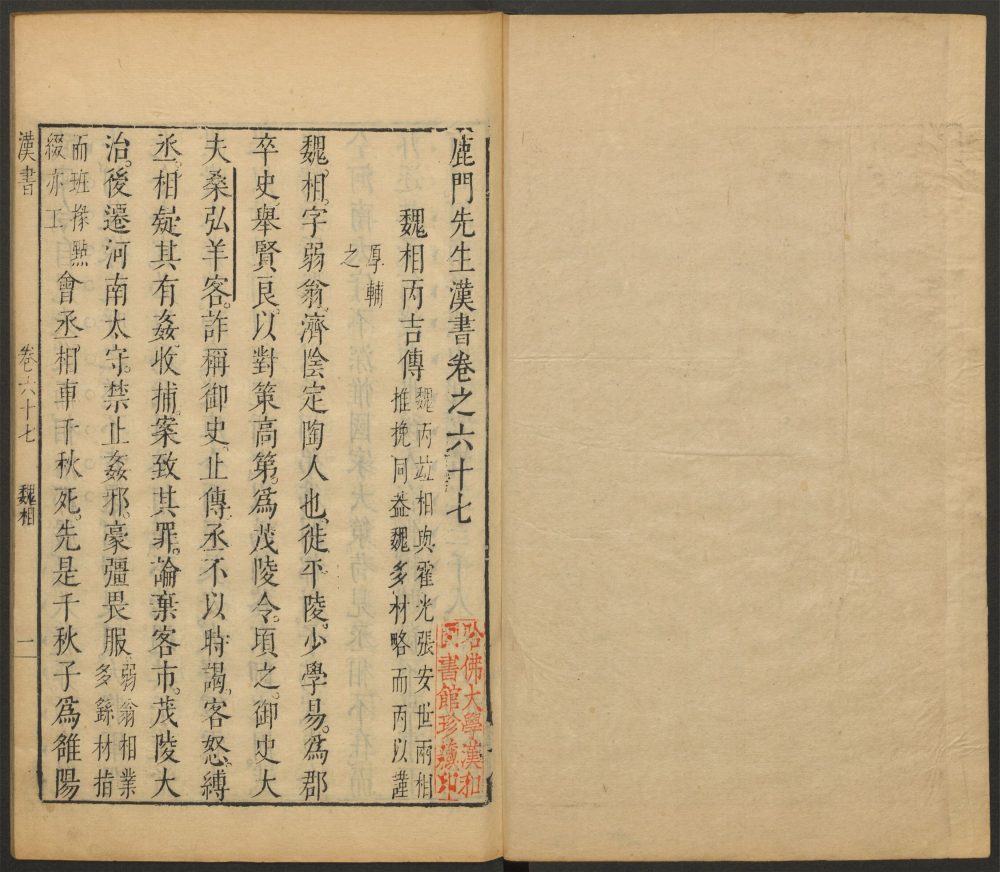 鹿門先生漢書卷之六十七
魏相丙吉傳
魏丙竝相與霍光張安世兩相
推挽同益魏多材略而丙以謹
厚輔
之
魏相字弱翁濟陰定陶人也徙平陵少學易為郡
卒史舉賢良以對策高第為茂陵令頃之御史大
夫桑弘羊客詐稱御史止傳丞不以時謁客怒縛
丞相疑其有姦收捕案致其罪論棄客市茂陵大
治後遷河南太守禁止姦邪豪彊畏服
弱翁相業
多錄材指
而班掾㸃
綴亦工
會丞相車千秋死先是千秋子為雒陽
漢書
卷六十七
魏相
一
哈佛大學漢和
圖書館珍藏印